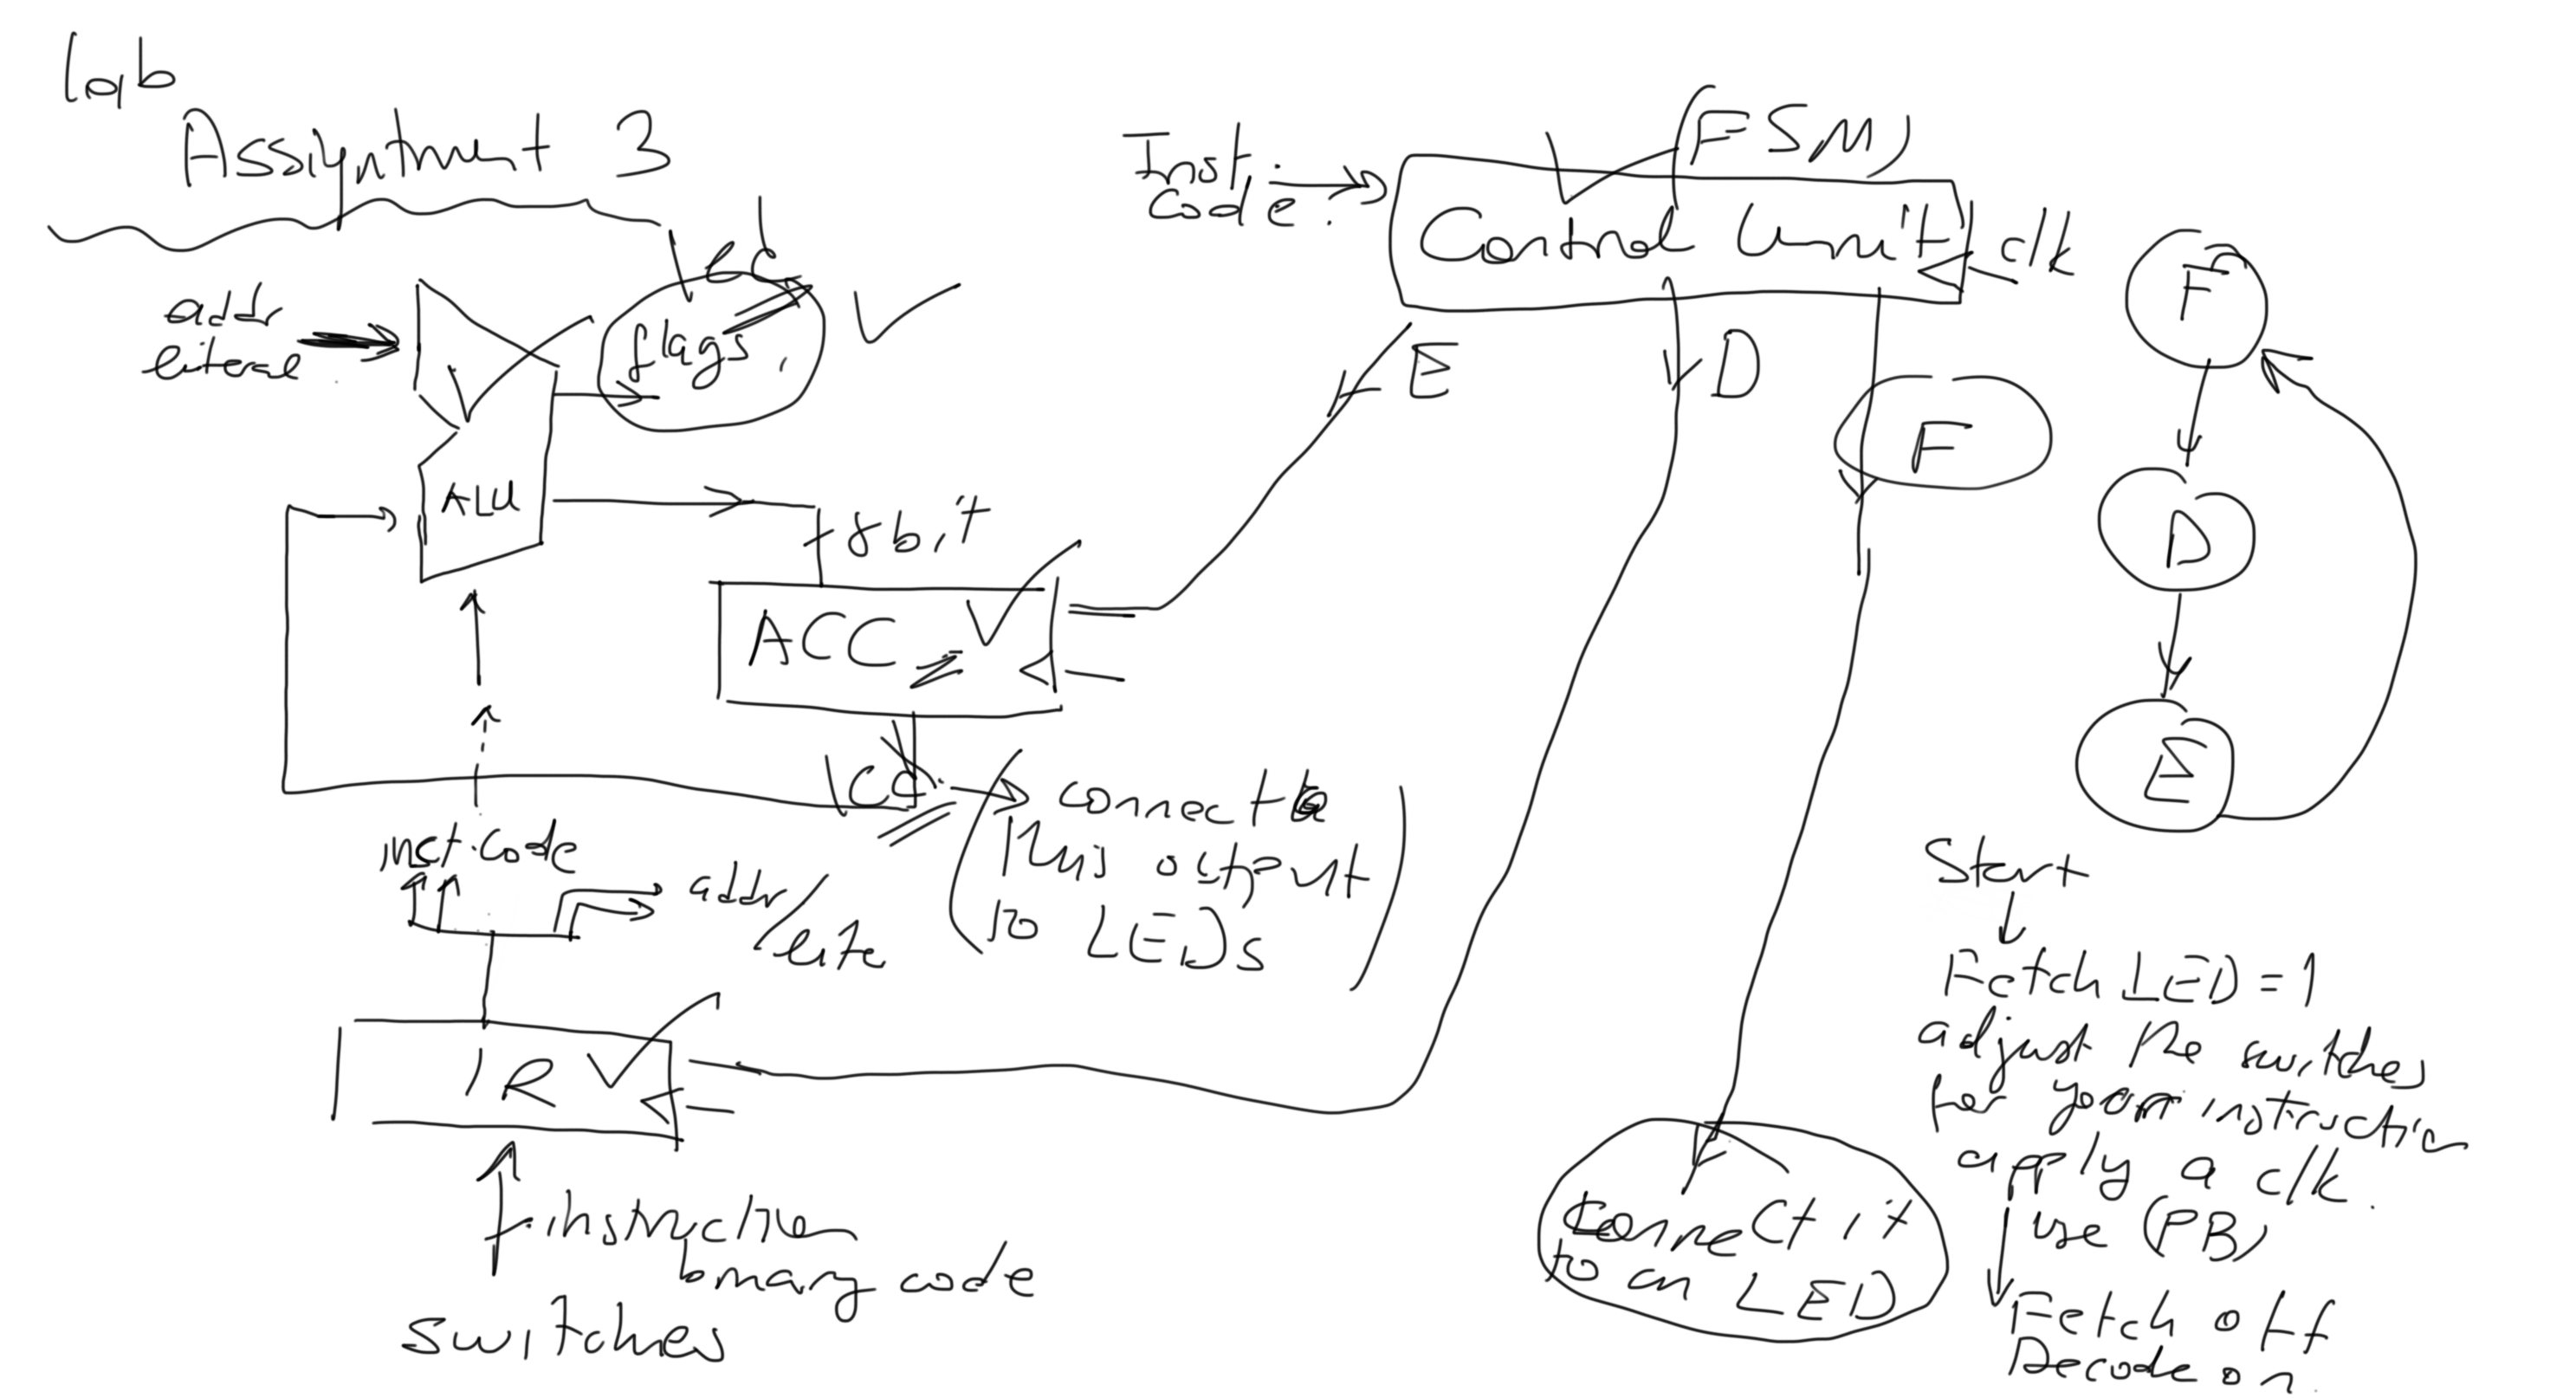 lab
Assigntment 3
led
flags
addr
literal
ALU
8bit
ACC
inst. code
addr/
lite
connect
this output
to LEDs
IR
instruction
binary code
switches
Inst.
Code.
(FSM)
Control Unit
clk
E
D
F
connect it
to an LED
F
D
E
Start
Fetch LED = 1
adjust the switches
for your instruction
apply a clk.
use (PB)
Fetch off
Decode on